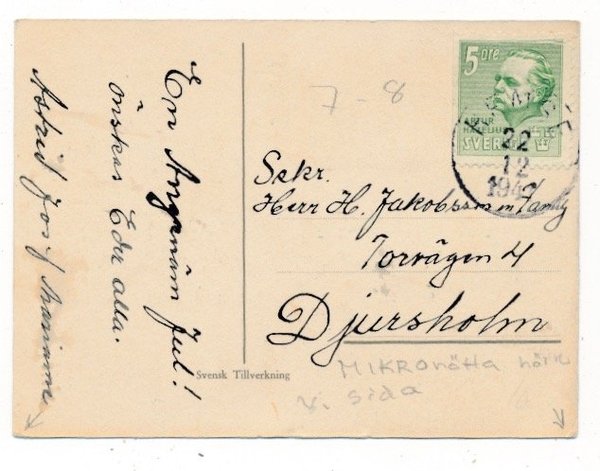 En Angenäm Jul!
önskas Eder alla.
Astrid Josef Marianne
Svensk Tillverkning
7-8
5 öre
ARTUR
HAZELIUS
SVERIGE
22
12
194
Sekr.
Herr H. Jakobsson m Familj
Torvägen 4
Djursholm
MIKROnötta hörn
v. sida